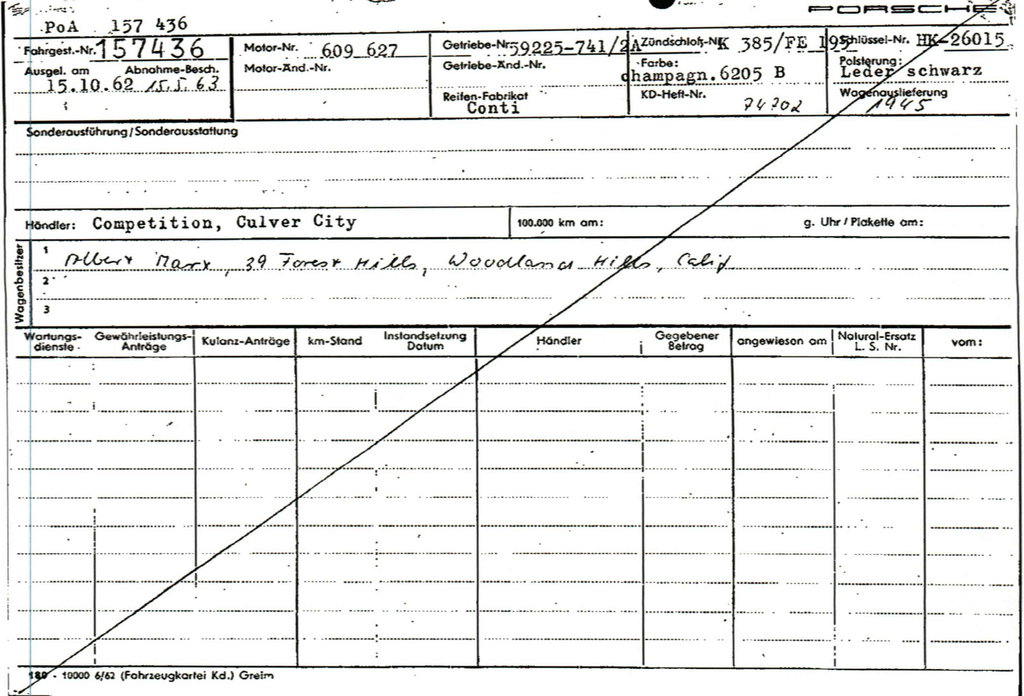 PORSCHE
PoA 157 436
Fahrgest.-Nr. 157436
Motor-Nr. 609 627
Getriebe-Nr. 59225-741/2A
Zündschloß-Nr. K 385/FE 195
Schlüssel-Nr. HK-26015
Ausgel. am Abnahme-Besch.
15.10.62 15.5.63
Motor-Änd.-Nr.
Getriebe-Änd.-Nr.
Farbe:
champagn.6205 B
Polsterung:
Leder schwarz
Reifen-Fabrikat
Conti
KD-Heft-Nr. 74702
Wagenauslieferung
1945
Sonderausführung/Sonderausstattung
Händler: Competition, Culver City
100.000 km am:
g. Uhr/Plakette am:
Wagenbesitzer
1 Albert Marx, 39 Forest Hills, Woodland Hills, Calif
2
3
Wartungs-dienste
Gewährleistungs-Anträge
Kulanz-Anträge
km-Stand
Instandsetzung Datum
Händler
Gegebener Betrag
angewiesen am
Natural-Ersatz L. S. Nr.
vom:
180 - 10000 6/62 (Fahrzeugkartei Kd.) Greim